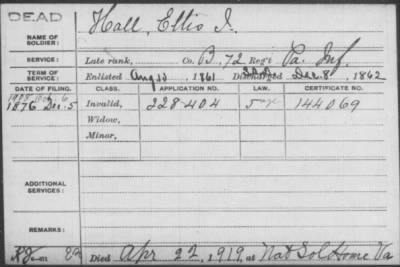 DEAD
NAME OF SOLDIER: Hall, Ellis I.
SERVICE: Late rank, Co. B, 72 Reg't Pa. Inf.
TERM OF SERVICE: Enlisted Aug 10, 1861 Discharged Dec. 8, 1862
DATE OF FILING. CLASS. APPLICATION NO. LAW. CERTIFICATE NO.
1876 Dec. 5 Invalid, 228404 144069
Widow,
Minor,
ADDITIONAL SERVICES:
REMARKS:
Died Apr 22, 1919, at Nat Sol Home Va